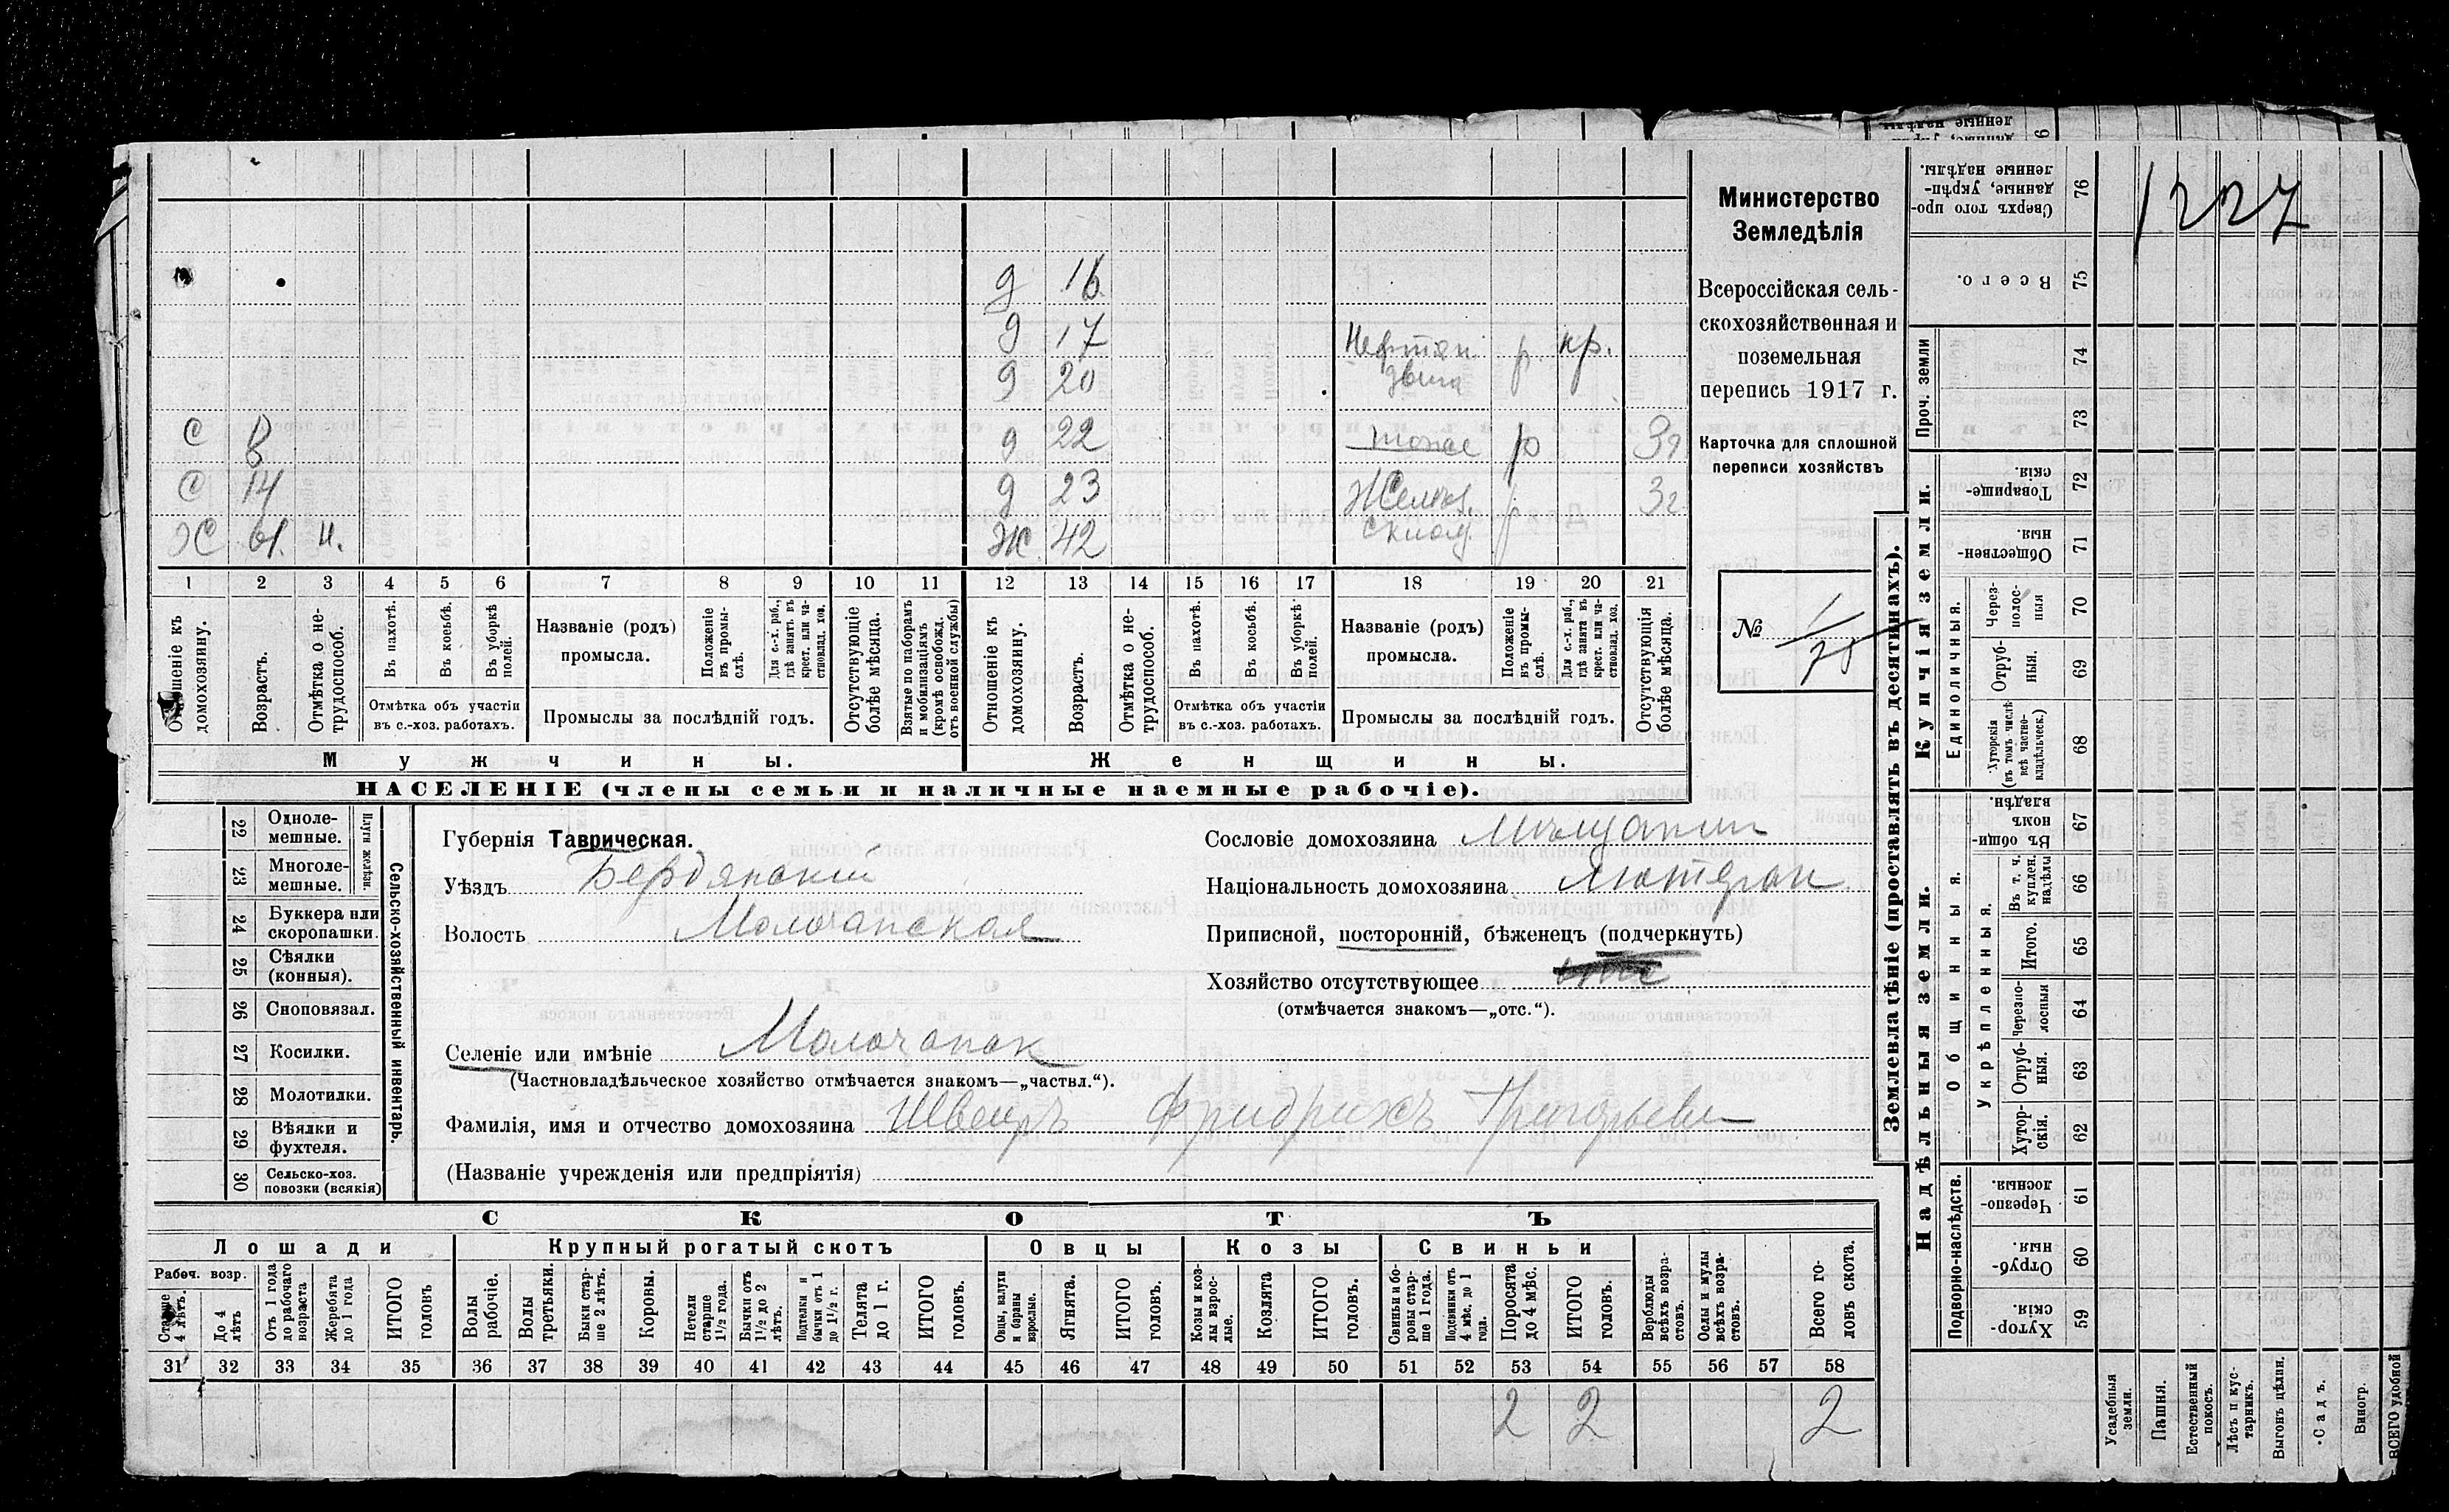 1227
Министерство
Земледѣлія
Всероссійская сель-
скохозяйственная и
поземельная
перепись 1917 г.
Карточка для сплошной
переписи хозяйствъ
№ 1/75
д 16
д 17 кр.
д 20
С 8 д 22 тоже р
С 14 д 23 р
Ж 61. н. Ж 42
1 2 3 4 5 6 7 8 9 10 11 12 13 14 15 16 17 18 19 20 21
Отношеніе къ домохозяину.
Возрастъ.
Отмѣтка о не-трудоспособ.
Въ пахотѣ.
Въ косьбѣ.
Въ уборкѣ полей.
Отмѣтка объ участіи
въ с.-хоз. работахъ.
Названіе (родъ)
промысла.
Положеніе въ промы-слѣ.
Для с.-х. раб., гдѣ занятъ въ крест. или ча-стновлад. хоз.
Промыслы за послѣдній годъ.
Отсутствующіе болѣе мѣсяца.
Взятые по наборамъ и мобилизаціямъ (кромѣ освобожд. отъ военной службы)
Отношеніе къ домохозяину.
Возрастъ.
Отмѣтка о не-трудоспособ.
Въ пахотѣ.
Въ косьбѣ.
Въ уборкѣ полей.
Отмѣтка объ участіи
въ с.-хоз. работахъ.
Названіе (родъ)
промысла.
Положеніе въ промы-слѣ.
Для с.-х. раб., гдѣ занята въ крест. или ча-стновлад. хоз.
Промыслы за послѣдній годъ.
Отсутствующія болѣе мѣсяца.
Мужчины. Женщины.
НАСЕЛЕНІЕ (члены семьи и наличные наемные рабочіе).
22 Одноле-мешные.
23 Многоле-мешные.
Плуги желѣзн.
24 Буккера или скоропашки.
25 Сѣялки (конныя).
26 Сноповязал.
27 Косилки.
28 Молотилки.
29 Вѣялки и фухтеля.
30 Сельско-хоз. повозки (всякія)
Сельско-хозяйственный инвентарь.
Губернія Таврическая.
Уѣздъ Бердянскій
Волость Молочанская
Селеніе или имѣніе Молочанск
(Частновладѣльческое хозяйство отмѣчается знакомъ—„частвл.“).
Фамилія, имя и отчество домохозяина Фридрихъ Григорьеви
(Названіе учрежденія или предпріятія)
Сословіе домохозяина Мѣщанин
Національность домохозяина Лютеран
Приписной, посторонній, бѣженецъ (подчеркнуть)
Хозяйство отсутствующее
(отмѣчается знакомъ—„отс.“).
СКОТЪ
Лошади Крупный рогатый скотъ Овцы Козы Свиньи
Рабоч. возр.
Старше 4 лѣтъ.
До 4 лѣтъ
Отъ 1 года до рабочаго возраста
Жеребята до 1 года
ИТОГО головъ
Волы рабочіе.
Волы третьяки.
Быки стар-ше 2 лѣтъ.
Коровы.
Нетели старше 1½ года.
Бычки отъ 1½ до 2 лѣтъ.
Подтелки и бычки отъ 1 до 1½ г.
Телята до 1 г.
ИТОГО головъ.
Овцы, валухи и бараны взрослые.
Ягнята.
ИТОГО головъ.
Козы и коз-лы взрос-лые.
Козлята
ИТОГО головъ.
Свиньи и бо-ровы стар-ше 1 года.
Подсвинки отъ 4 мѣс. до 1 года.
Поросята до 4 мѣс.
ИТОГО головъ.
Верблюды всѣхъ возра-стовъ.
Ослы и мулы всѣхъ возра-стовъ.
Всего го-ловъ скота.
31 32 33 34 35 36 37 38 39 40 41 42 43 44 45 46 47 48 49 50 51 52 53 54 55 56 57 58
2 2 2
Землевладѣніе (проставлять въ десятинахъ).
Надѣльныя земли. Купчія земли. Проч. земли
Подворно-наслѣдств.
Общинныя.
Укрѣпленныя.
Единоличныя.
59 Хутор-скія.
60 Отруб-ныя.
61 Черезпо-лосныя.
62 Хутор-скія.
63 Отруб-ныя.
64 Черезпо-лосныя
65 Итого.
66 Въ т. ч. куплен. надѣлы
67 Въ общин-номъ владѣн.
68 Хуторскія (въ томъ числѣ всѣ частно-владѣльческ.)
69 Отруб-ныя.
70 Через-полос-ныя
71 Обществен-ныя
72 Товарище-скія.
73
74
75 Всего.
76 Сверхъ того про-данные, укрѣп-ленные надѣлы.
Усадебныя земли.
Пашня.
Естественный покосъ.
Лѣсъ и кус-тарникъ.
Выгонъ цѣлин.
Садъ.
Виногр.
ВСЕГО удобной